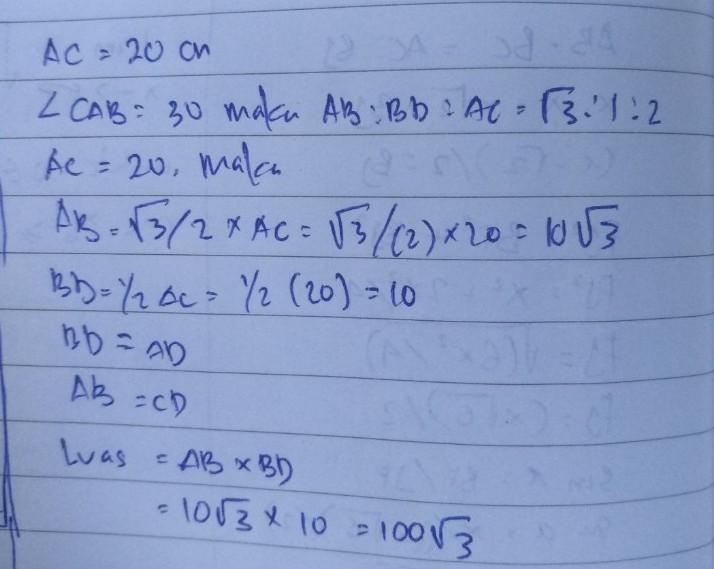 AC = 20 cm
∠CAB = 30 maka AB : BD : AC = √3 : 1 : 2
AC = 20, maka
AB = √3/2 × AC = √3/(2) × 20 = 10√3
BD = 1/2 AC = 1/2 (20) = 10
BD = AD
AB = CD
Luas = AB × BD
= 10√3 × 10 = 100√3